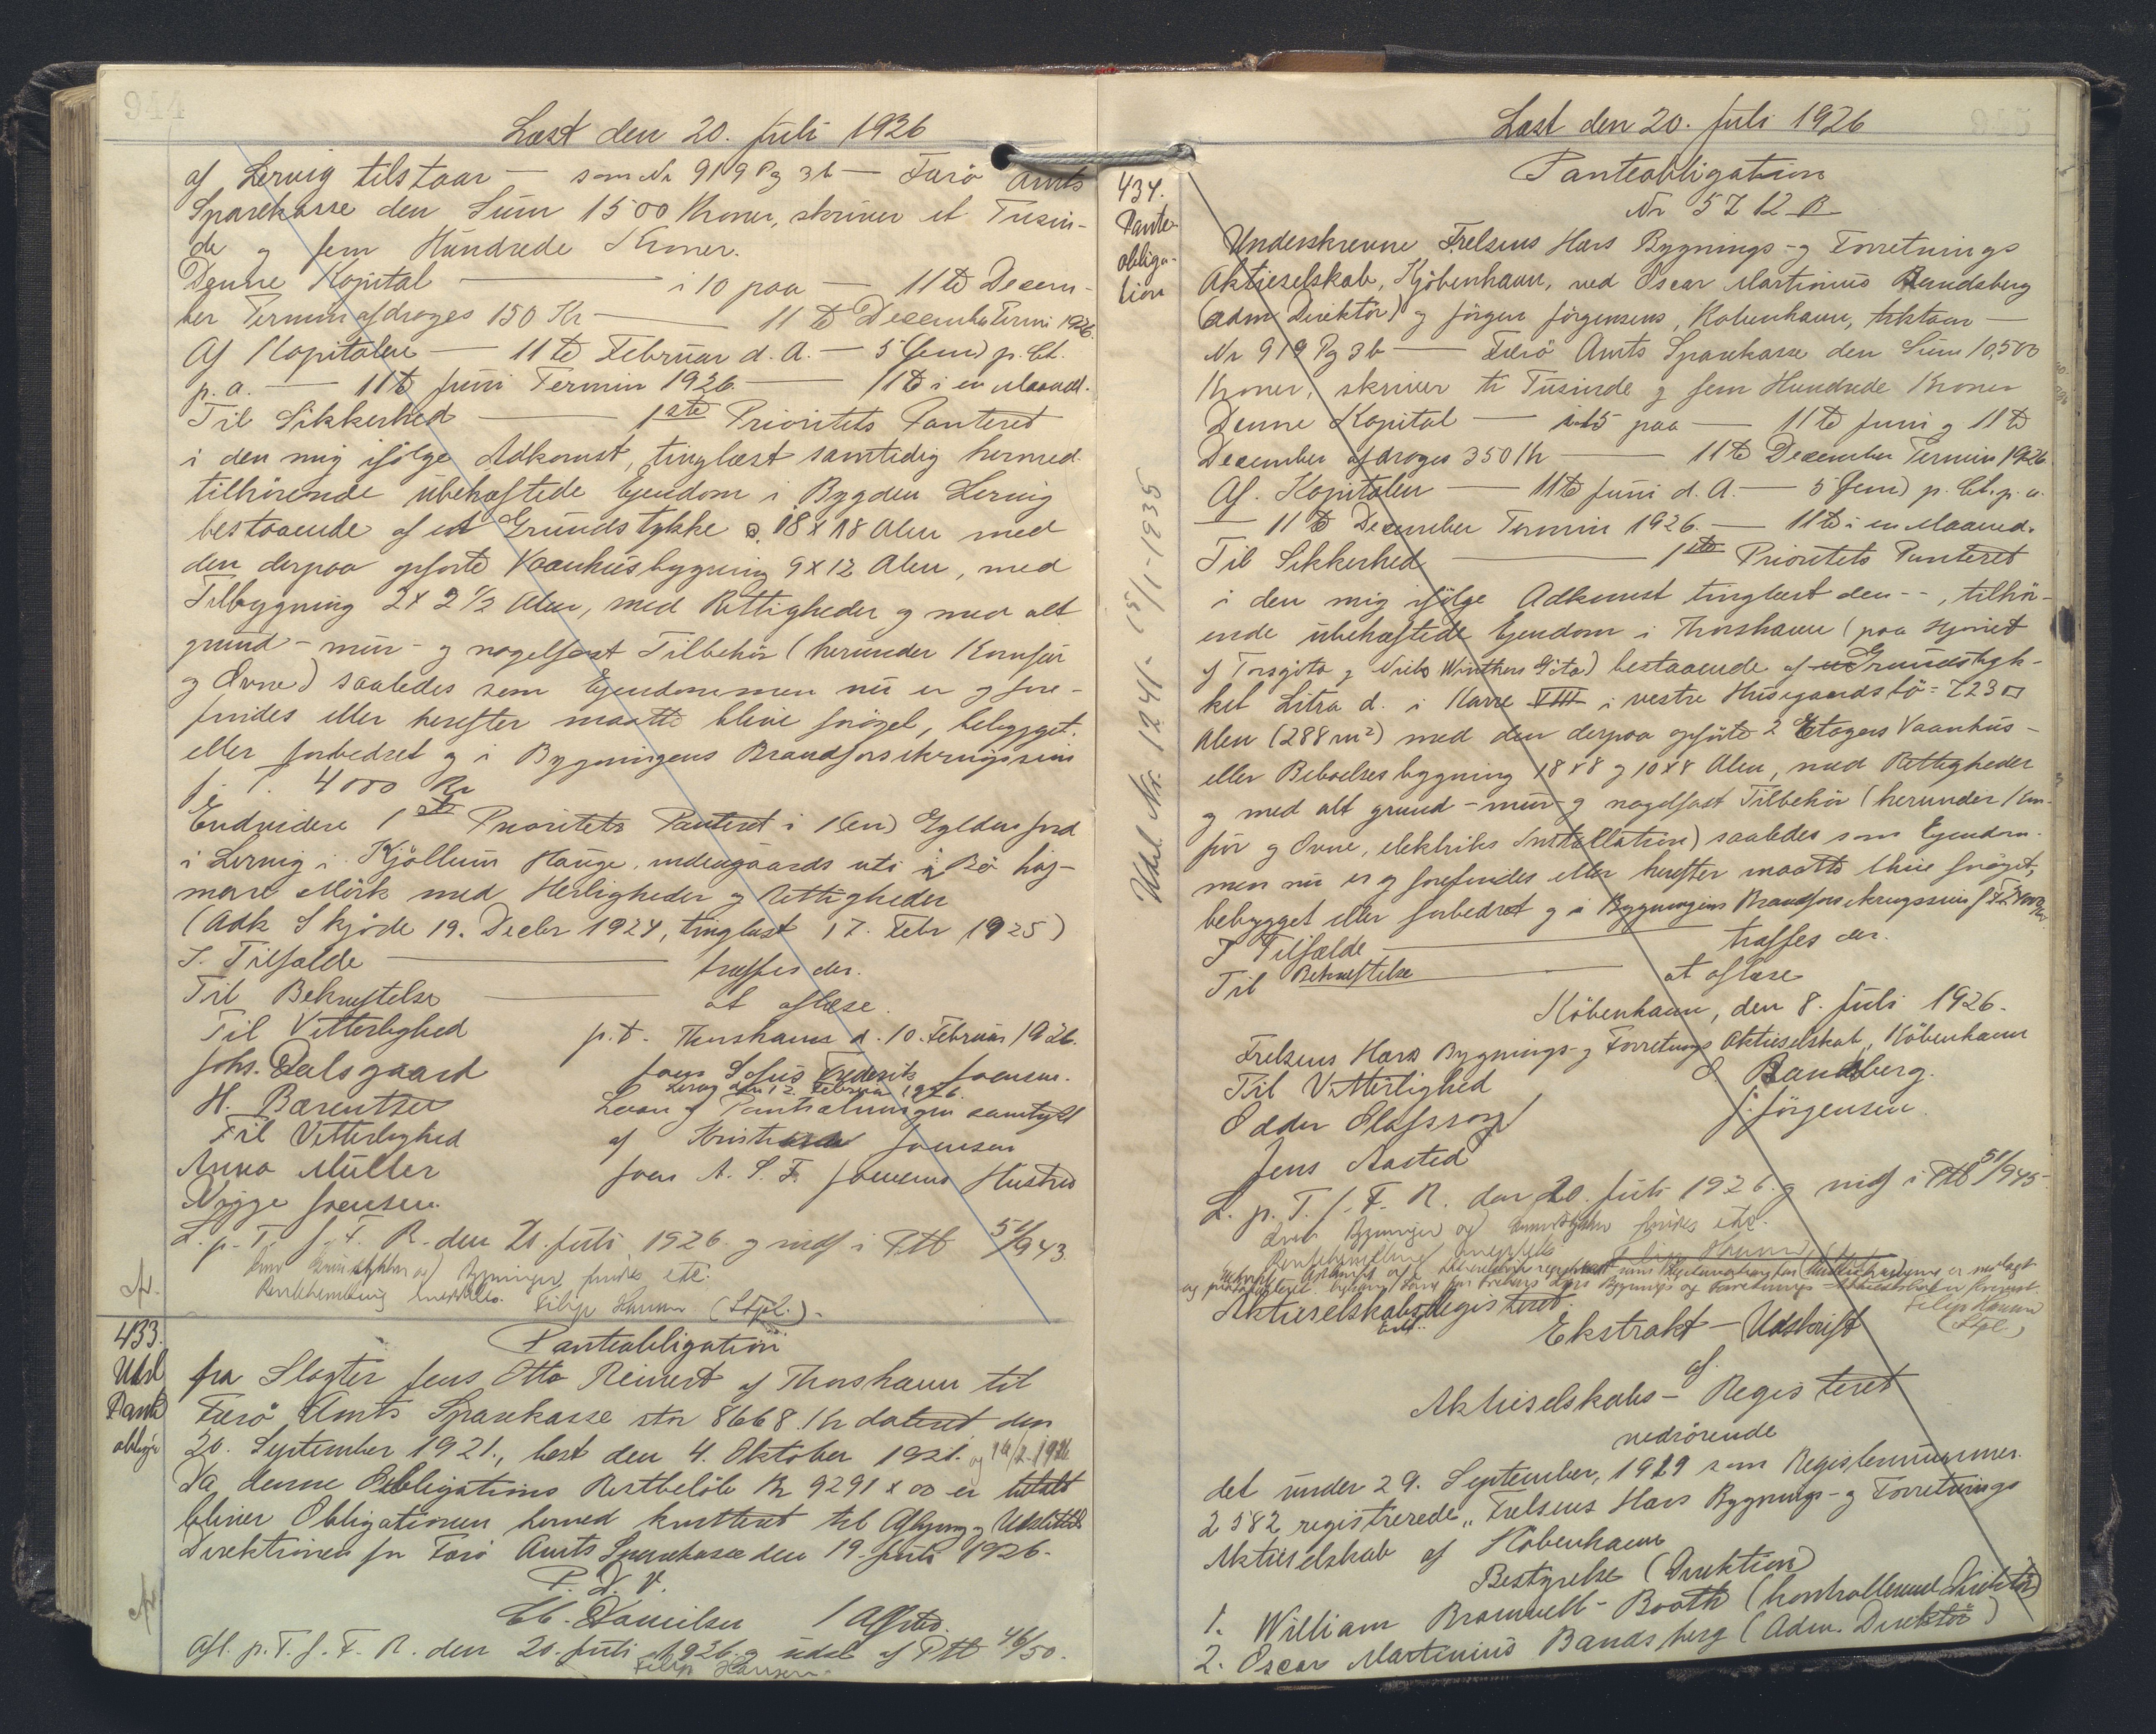 944
Læst den 20. Juli 1926
af Lervig tilstaar — som Nr 919 Pg 3b — Færø Amts
Sparekasse den Sum 1500 Kroner, skriver et Tusin-
de og fem Hundrede Kroner.
Denne Kapital — i 10 paa — 11te Decem-
ber Termin afdrages 150 Kr — 11te December Termin 1926.
Af Kapitalen — 11te Februar d. A. — 5 (fem) p. Ct.
p. a. — 11te Juni Termin 1926 — 11te i en Maaned.
Til Sikkerhed — 1ste Prioritets Panteret
i den mig ifølge Adkomst, tinglæst samtidig hermed
tilhørende ubehæftede Ejendom i Bygden Lervig
bestaaende af et Grundstykke a. 18 x 18 Alen med
den derpaa opførte Vaanhusbygning 9 x 12 Alen, med
Tilbygning 2 x 2 1/2 Alen, med Rettigheder og med alt
grund- mur- og nagelfast Tilbehør (herunder Komfur
og Ovne) saaledes som Ejendommen nu er og fore-
findes eller herefter maatte blive forøget, bebygget
eller forbedret og i Bygningens Brandforsikringssum
f. T. 4000 Kr
Endvidere 1ste Prioritets Panteret i 1 (en) Gylden Jord
i Lervig i Kjøllum Hauge, indengaards uti i Bø hag-
mare Mörk med Herligheder og Rettigheder
(Adk Skjøde 19. Decbr 1924, tinglæst 17. Febr 1925)
I Tilfælde — træffes der.
Til Bekræftelse — at aflæse.
Til Vitterlighed p.t. Thorshavn d. 10. Februar 1926.
Johs. Dalsgaard Joen Sofus Frederik Joensen.
Lervig den 12. Februar 1926.
H. Barentsen Laan og Pantsætningen samtykt
Til Vitterlighed af Kristina Joensen
Anna Müller Joen A. S. F. Joensens Hustru
Vigge Joensen.
L. p. T. f. F. R. den 20. Juli 1926 og indf i Ptb 51/943
Grundstykker og Bygninger findes etc.
Filip Hansen (Stpl.).
433.
Udsl
Pante
obliga
Panteobligation
fra Slagter Jens Otto Reinert af Thorshavn til
Færø Amts Sparekasse stor 8668 Kr dateret den
20. September 1921, læst den 4. Oktober 1921.
Da denne Obligations Restbeløb Kr 9291 x 00 er betalt
bliver Obligationen herved kvitteret til Aflysning og Udslettelse
Direktionen for Færø Amts Sparekasse den 19. Juli 1926.
P. D. V.
C. Danielsen
Afl. p. T. f. F. R. den 20. Juli 1926 og udsl af Ptb 46/50.
Filip Hansen
Læst den 20. Juli 1926
434.
Pante-
obliga-
tion
Udsl. Nr. 1241 - 15/1-1935
Panteobligation
Nr 5712 B
Underskrevne Frelsens Hærs Bygnings- og Forretnings
Aktieselskab, Kjøbenhavn, ved Oscar Martinius Bandsberg
(adm Direktör) og Jörgen Jörgensens, København, tilstaar —
Nr 919 Pg 3b — Færö Amts Sparekasse den Sum 10,500
Kroner, skriver ti Tusinde og fem Hundrede Kroner
Denne Kapital — i 15 paa — 11te Juni og 11te
December afdrages 350 Kr — 11te December Termin 1926.
Af Kapitalen — 11te Juni d. A. — 5 (fem) p. Ct. p. a.
— 11te December Termin 1926. — 11te i en Maaned.
Til Sikkerhed — 1ste Prioritets Panteret
i den mig ifölge Adkomst tinglæst den - - , tilhör-
ende ubehæftede Ejendom i Thorshavn (paa Hjörnet
af Torsgöta og Niels Winthers Göta) bestaaende af Grundstyk-
ket Litra d. i Karre VIII i vestre Husegaardsbö = 723 □
Alen (288 m²) med den derpaa opförte 2 Etagers Vaanhus-
eller Beboelsesbygning 18 x 8 og 10 x 8 Alen, med Rettigheder
og med alt grund- mur- og nagelfast Tilbehör (herunder Kom-
fur og Ovne, elektriks Installation) saaledes som Ejendom-
men nu er og forefindes eller herefter maatte blive forøget,
bebygget eller forbedret og i Bygningens Brandforsikringssum
I Tilfælde — træffes der.
Til Bekræftelse — at aflæse
København, den 8. Juli 1926.
Frelsens Hærs Bygnings- og Forretnings Aktieselskab, København
Til Vitterlighed O Bandsberg.
Odder Olafsson J. Jörgensen.
Jens Aasted
L. p. T. f. F. R. den 20. Juli 1926 og indf i Ptb 51/945.
Bygninger og Grundstykke findes etc.
Filip Hansen
(Stpl.)
Aktieselskabs-Registeret.
Ekstrakt-Udskrift
af
Aktieselskabs-Registeret
vedrörende
det under 29. September, 1919 som Registernummer
2582 registrerede „Frelsens Hærs Bygnings- og Forretnings
Aktieselskab af København
Bestyrelse (Direktion)
1. William Bramwell-Booth (kontrollerende Direktör)
2. Oscar Martinius Bandsberg (Adm. Direktör)